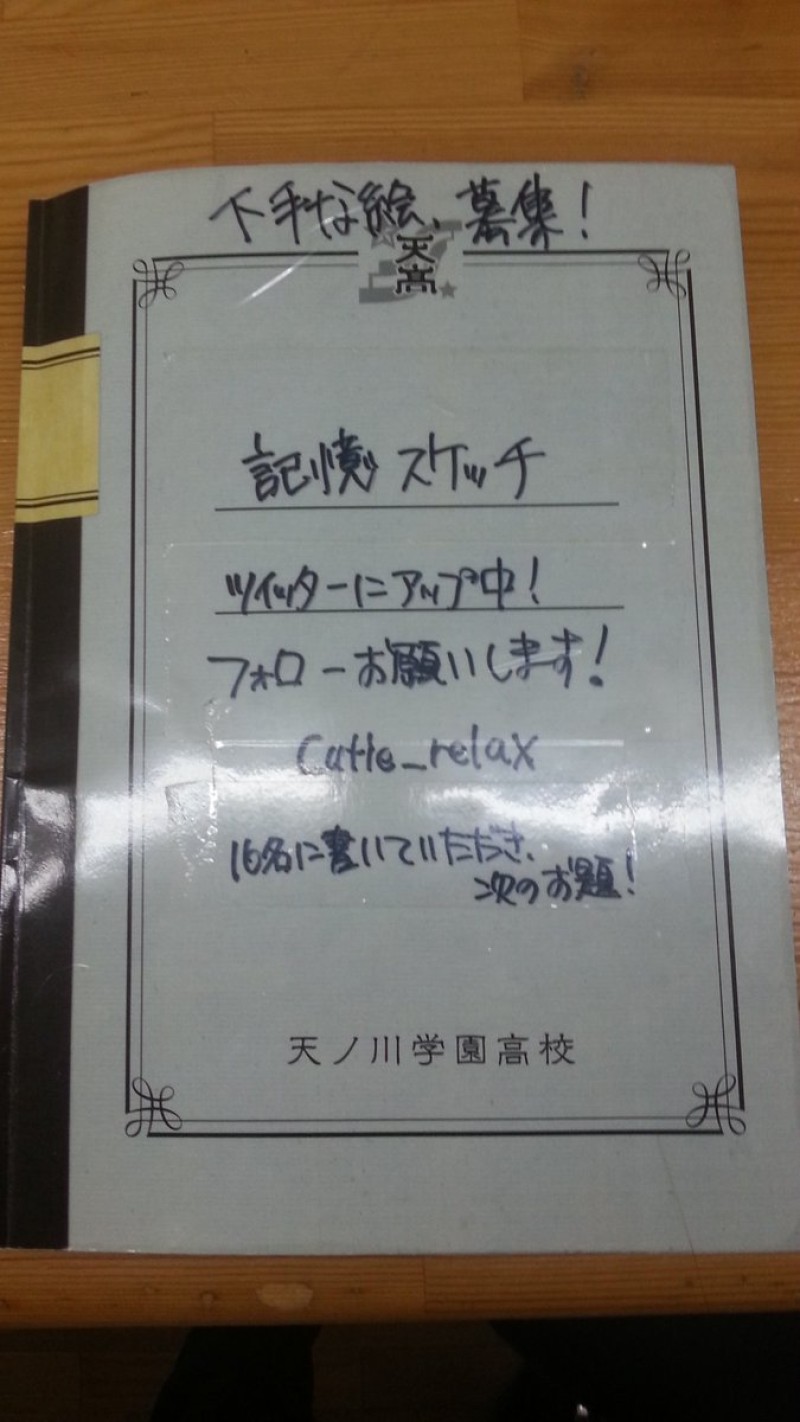 下手な絵、募集!
天高
記憶スケッチ
ツイッターにアップ中!
フォローお願いします!
Cutie_relax
16名に書いていただき、
次のお題!
天ノ川学園高校